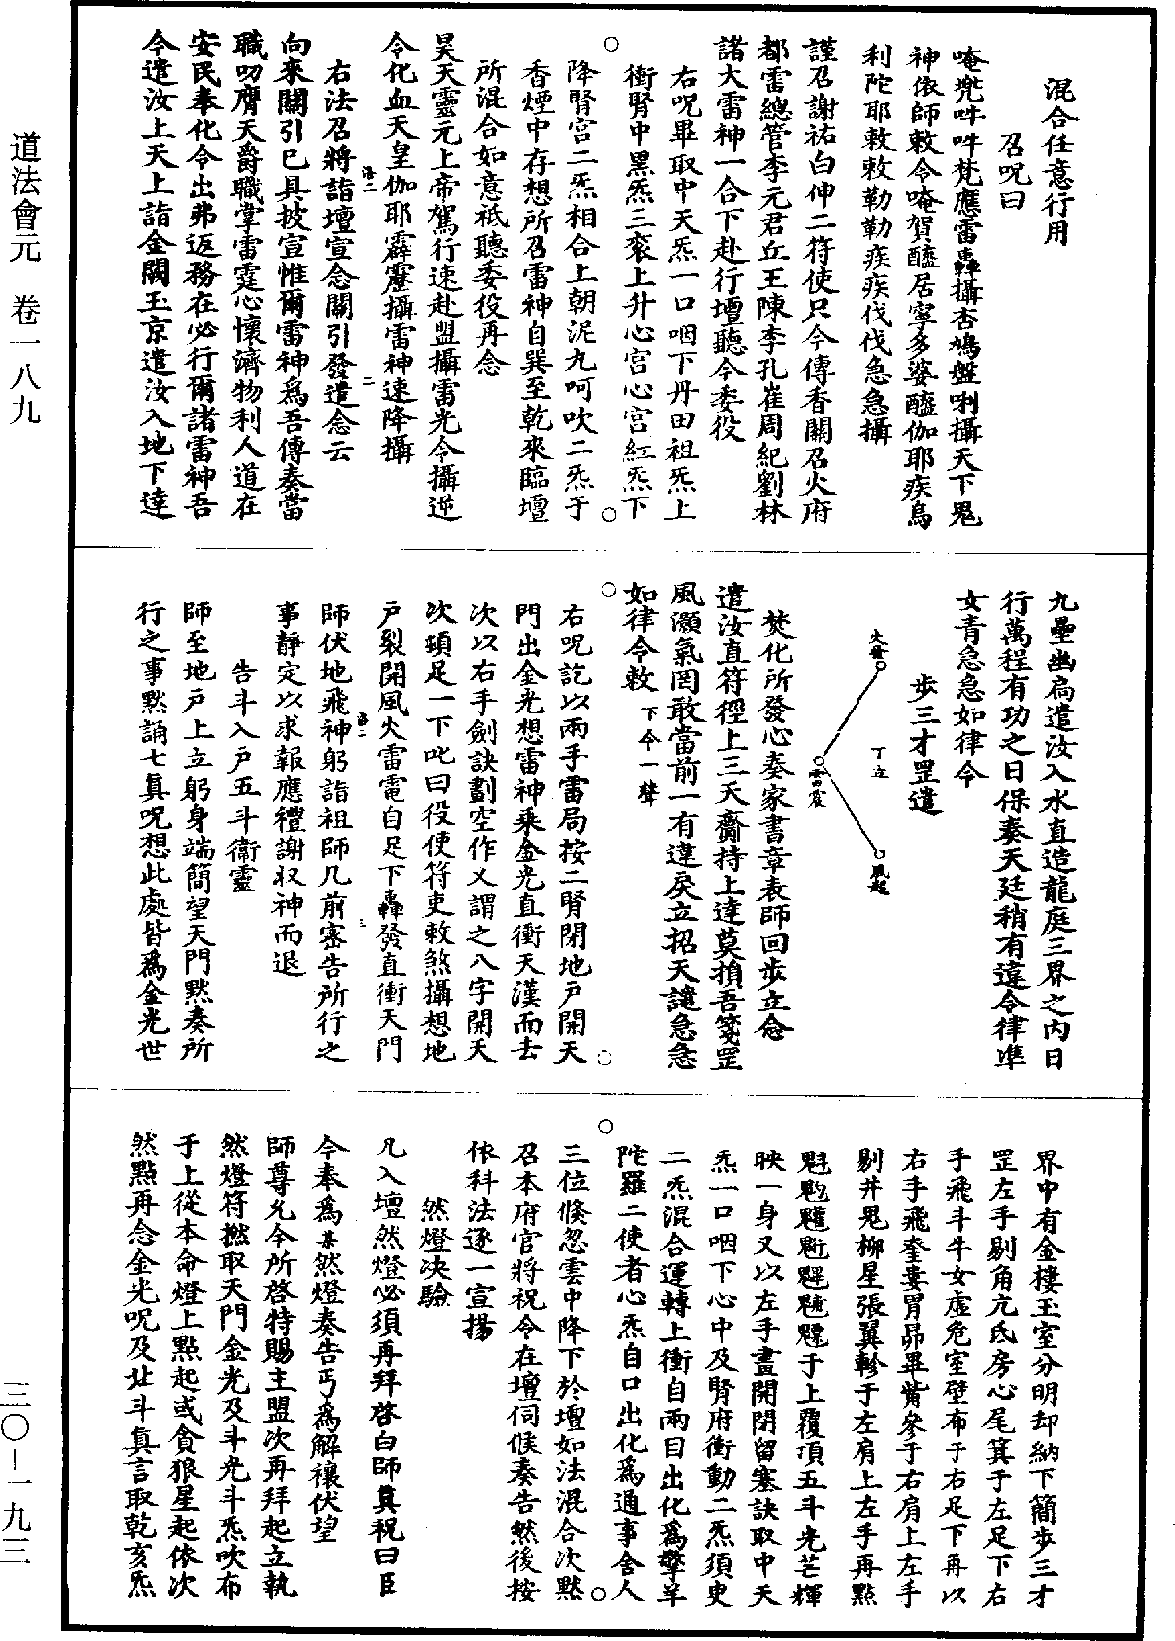 混合任意行用
召呪曰
唵兠吽吽梵應雷轟攝杏鳩盤唎攝天下鬼
神依師敕令唵賀醯居寧多婆醯伽耶疾烏
利陀耶敕敕勒勒疾疾伐伐急急攝
謹召謝祐白伸二符使只今傳香關召火府
都雷總管李元君丘王陳李孔崔周紀劉林
諸大雷神一合下赴行壇聽令委役
右呪畢取中天炁一口咽下丹田祖炁上
衝腎中黑炁三衮上升心宮心宮紅炁下
降腎宮二炁相合上朝泥丸呵吹二炁于
香煙中存想所召雷神自巽至乾來臨壇
所混合如意祇聽委役再念
昊天靈元上帝駕行速赴盟攝雷光令攝逆
令化血天皇伽耶霹靂攝雷神速降攝
右法召將詣壇宣念關引發遣念云
向來關引已具披宣惟爾雷神爲吾傳奏當
職叨膺天爵職掌雷霆心懷濟物利人道在
安民奉化令出弗返務在必行爾諸雷神吾
令遣汝上天上詣金闕玉京遣汝入地下達
九壘幽扃遣汝入水直造龍庭三界之内日
行萬程有功之日保奏天廷稍有違令律準
女青急急如律令
步三才罡遣
火發
丁立
雷震
風起
焚化所發心奏家書章表師回步立念
遣汝直符徑上三天齎持上達莫損吾箋罡
風灝氣罔敢當前一有違戾立招天譴急急
如律令敕 下令一聲
右呪訖以兩手雷局按二腎閉地戶開天
門出金光想雷神乘金光直衝天漢而去
次以右手劍訣劃空作乂謂之八字開天
次頓足一下叱曰役使符吏敕煞攝想地
戶裂開風火雷電自足下轟發直衝天門
師伏地飛神躬詣祖師几前密告所行之
事靜定以求報應禮謝収神而退
告斗入戶五斗衞靈
師至地戶上立躬身端簡望天門黙奏所
行之事黙誦七真呪想此處皆爲金光世
界中有金樓玉室分明却納下簡步三才
罡左手剔角亢氐房心尾箕于左足下右
手飛斗牛女虛危室壁布于右足下再以
右手飛奎婁胃昴畢觜參于右肩上左手
剔井鬼柳星張翼軫于左肩上左手再點
魁䰢䰤魓䰥䰧䰨于上覆頂五斗光芒輝
映一身又以左手畫開閉留塞訣取中天
炁一口咽下心中及腎府衝動二炁須臾
二炁混合運轉上衝自兩目出化爲擎羊
陀羅二使者心炁自口出化爲通事舍人
三位倏忽雲中降下於壇如法混合次黙
召本府官將祝令在壇伺候奏告然後按
依科法逐一宣揚
然燈决驗
凡入壇然燈必須再拜啓白師真祝曰臣
今奉爲某然燈奏告丐爲解禳伏望
師尊允今所啓特賜主盟次再拜起立執
然燈符撚取天門金光及斗光斗炁吹布
于上從本命燈上點起或貪狼星起依次
然點再念金光呪及北斗真言取乾亥炁
道法會元 卷一八九
三〇-一九三